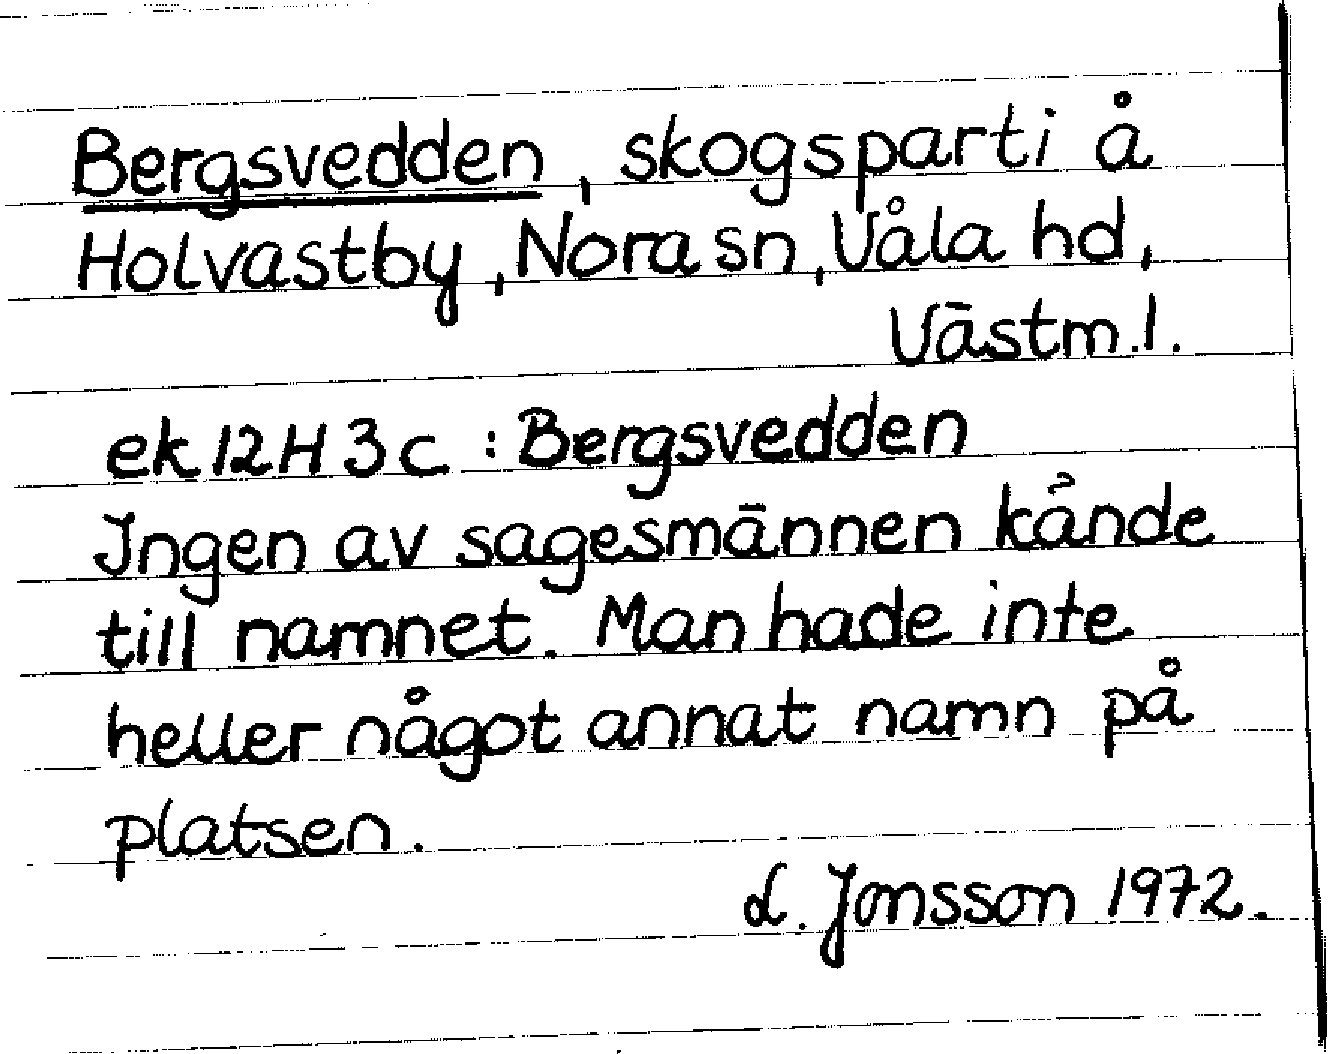 Bergsvedden, skogsparti å
Holvastby, Nora sn, Våla hd,
Västm. l.
ek 12H 3c : Bergsvedden
Ingen av sagesmännen kände
till namnet. Man hade inte
heller något annat namn på
platsen.
L. Jonsson 1972.